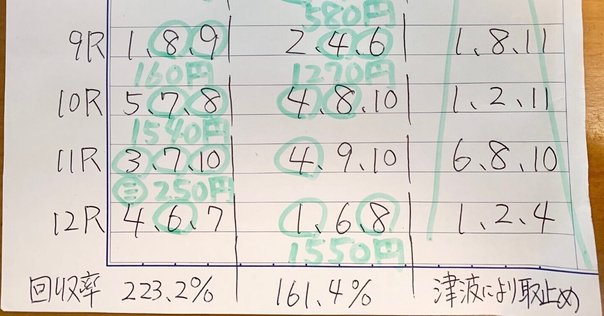 580円
9R 1、8、9 2、4、6 1、8、11
160円 1270円
10R 5、7、8 4、8、10 1、2、11
1540円
11R 3、7、10 4、9、10 6、8、10
㊂ 250円
12R 4、6、7 1、6、8 1、2、4
1550円
回収率 223.2% 161.4% 津波により取止め